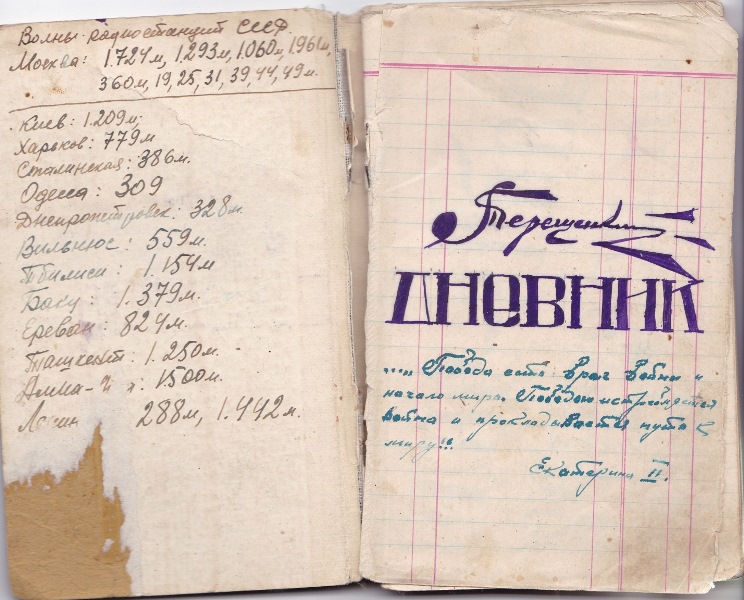 Волны радиостанций СССР
Москва: 1.724м, 1.293м, 1.060м, 1961м,
360м, 19, 25, 31, 39, 44, 49м.
Киев: 1.209м,
Харьков: 779м
Сталинская: 386м.
Одесса: 309
Днепропетровск: 328м.
Вильнюс: 559м.
Тбилиси: 1.154м
Баку: 1.379м.
Ереван: 824м.
Ташкент: 1.250м.
Алма- 1500м.
288м, 1.442м.
Терещенко
ДНЕВНИК
.... Победа есть враг войны и
начало мира. Победою истребляется
война и прокладывается путь к
миру"..
Екатерина II.